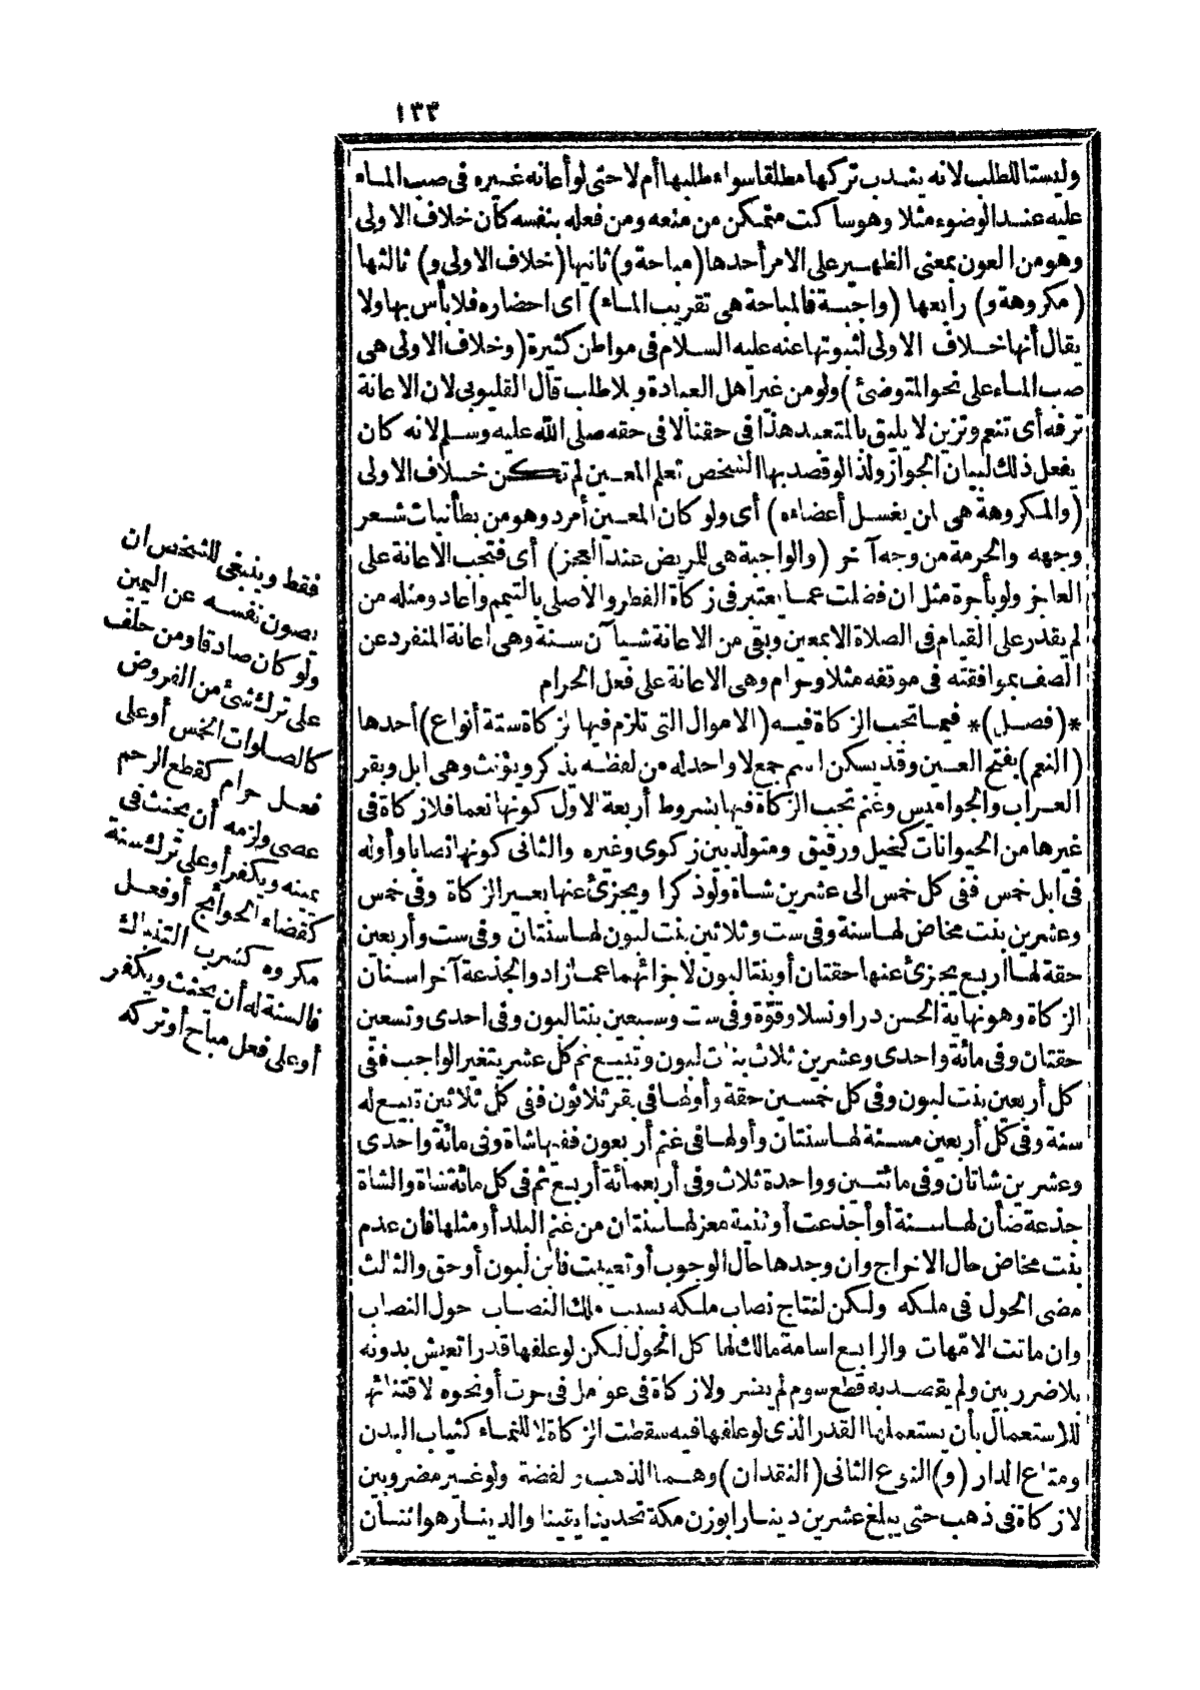 ١٣٣
وليستا للطلب لانه يندب تركها مطلقا سواء طلبها أم لا حتى لو أعانه غيره فى صب الماء
عليه عند الوضوء مثلا وهو ساكت متمكن من منعه ومن فعله بنفسه كان خلاف الاولى
وهو من العون بمعنى الظهير على الامر أحدها (مباحة و) ثانيها (خلاف الاولى و) ثالثها
(مكروهة و) رابعها (واجبة فالمباحة هى تقريب الماء) اى احضاره فلا بأس بها ولا
يقال أنها خلاف الاولى لثبوتها عنه عليه السلام فى مواطن كثيرة (وخلاف الاولى هى
صب الماء على نحو المتوضئ) ولو من غير أهل العبادة وبلا طلب قال القليوبى لان الاعانة
ترفه أى تنعم وتزين لا يليق بالمتعبد هذا فى حقنا لا فى حقه صلى الله عليه وسلم لانه كان
يفعل ذلك لبيان الجواز ولذا لو قصد بها الشخص تعلم المعين لم تكن خلاف الاولى
(والمكروهة هى لمن يغسل أعضاءه) أى ولو كان المعين أمرد وهو من بطأ نبات شعر
وجهه والحرمة من وجه آخر (والواجبة هى للمريض عند العجز) أى فتجب الاعانة على
العاجز ولو بأجرة مثل ان فضلت عما يعتبر فى زكاة الفطر والا صلى بالتيمم وأعاد ومثله من
لم يقدر على القيام فى الصلاة الا بمعين وبقى من الاعانة شيآن سنة وهى اعانة المنفرد عن
الصف بموافقته فى موقفه مثلا وحرام وهى الاعانة على فعل الحرام
*(فصل)* فيما تجب الزكاة فيه (الاموال التى تلزم فيها الزكاة ستة أنواع) أحدها
(النعم) بفتح العين وقد يسكن اسم جمع لا واحد له من لفظه يذكر ويؤنث وهى ابل وبقر
العراب والجواميس وغنم تجب الزكاة فيها بشروط أربعة الاول كونها نعما فلا زكاة فى
غيرها من الحيوانات كخيل ورقيق ومتولد بين زكوى وغيره والثانى كونها نصابا وأوله
فى ابل خمس ففى كل خمس الى عشرين شاة ولو ذكرا ويجزئ عنها بعير الزكاة وفى خمس
وعشرين بنت مخاض لها سنة وفى ست وثلاثين بنت لبون لها سنتان وفى ست وأربعين
حقة لها أربع يجزئ عنها حقتان أو بنتا لبون لاجزائهما عما زاد والجذعة آخر اسنان
الزكاة وهو نهاية الحسن درا ونسلا وقوّة وفى ست وسبعين بنتا لبون وفى احدى وتسعين
حقتان وفى مائة واحدى وعشرين ثلاث بنات لبون وتبيع ثم كل عشر يتغير الواجب ففى
كل أربعين بنت لبون وفى كل خمسين حقة وأولها فى بقر ثلاثون ففى كل ثلاثين تبيع له
سنة وفى كل أربعين مسنة لها سنتان وأولها فى غنم أربعون ففيها شاة وفى مائة واحدى
وعشرين شاتان وفى مائتين وواحدة ثلاث وفى أربعمائة أربع ثم فى كل مائة شاة والشاة
جذعة ضأن لها سنة أو أجذعت أو ثنية معز لها سنتان من غنم البلد أو مثلها فان عدم
بنت مخاض حال الاخراج وان وجدها حال الوجوب أو تعيبت فابن لبون أو حق والثالث
مضى الحول فى ملكه ولكن لنتاج نصاب ملكه بسبب ملك النصاب حول النصاب
وان ماتت الامّهات والرابع اسامة مالك لها كل الحول لكن لو علفها قدرا تعيش بدونه
بلا ضرر بين ولم يقصد به قطع سوم لم يضر ولا زكاة فى عوامل فى حرث أو نحوه لاقتنائها
للاستعمال بأن يستعملها القدر الذى لو علفها فيه سقطت الزكاة لا للنماء كثياب البدن
ومتاع الدار (و) النوع الثانى (النقدان) وهما الذهب والفضة ولو غير مضروبين
لا زكاة فى ذهب حتى يبلغ عشرين دينارا بوزن مكة تحديدا يقينا والدينار هو اثنان
فقط وينبغى للشخص ان
يصون نفسه عن اليمين
ولو كان صادقا ومن حلف
على ترك شئ من الفروض
كالصلوات الخمس أو على
فعل حرام كقطع الرحم
عصى ولزمه أن يحنث فى
يمينه ويكفر أو على ترك سنة
كقضاء الحوائج أو فعل
مكروه كشرب التنباك
فالسنة له أن يحنث ويكفر
أو على فعل مباح أو تركه